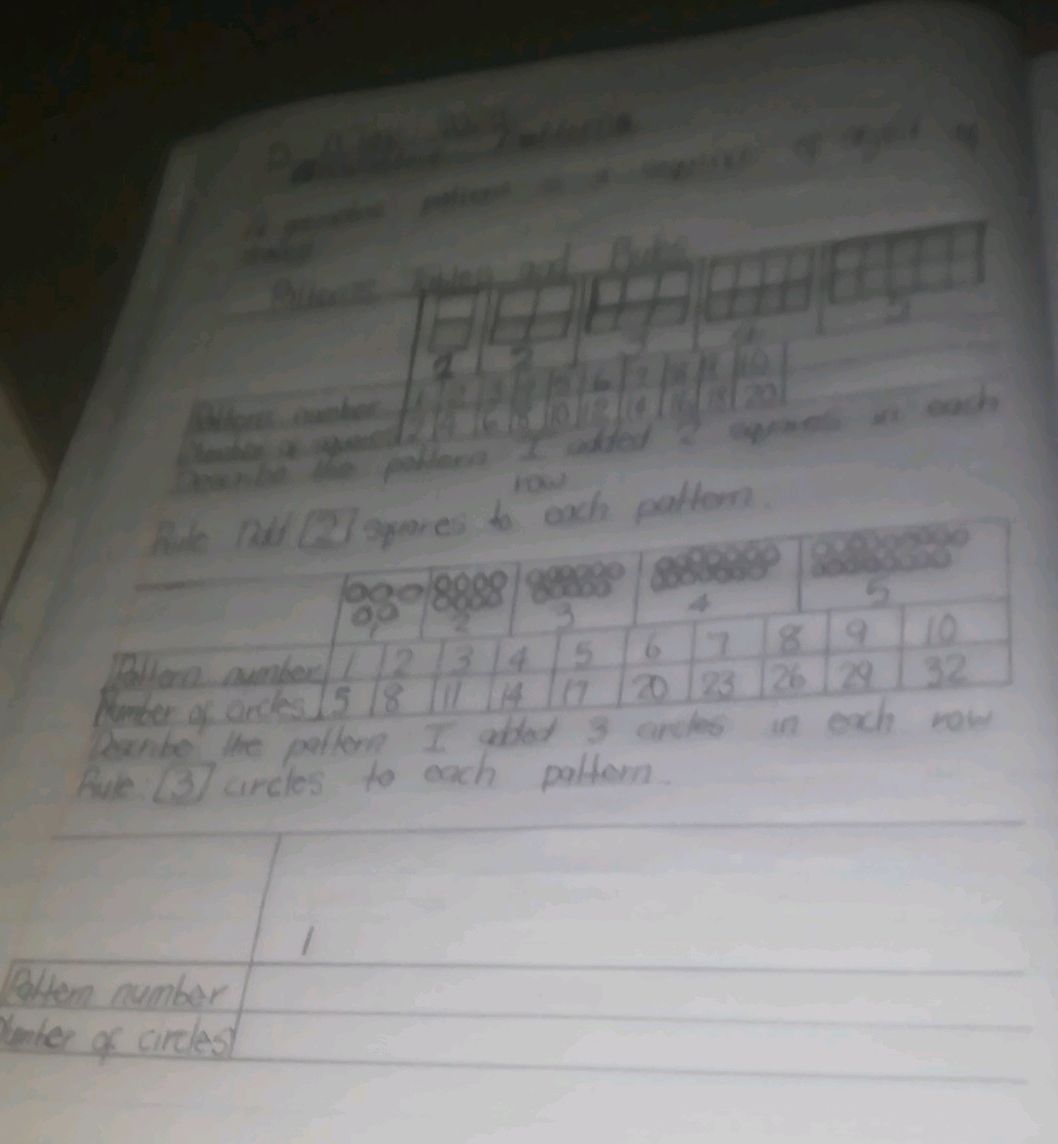 Patterns Tables and Rules
1 2 3 4 5
Pattern number 1 2 3 4 5 6 7 8 9 10
Number of squares 2 4 6 8 10 12 14 16 18 20
Describe the pattern I added 2 squares in each
row
Rule Add [2] squares to each pattern.
1 2 3 4 5
Pattern number 1 2 3 4 5 6 7 8 9 10
Number of circles 5 8 11 14 17 20 23 26 29 32
Describe the pattern I added 3 circles in each row
Rule: [3] circles to each pattern.
1
Pattern number
Number of circles